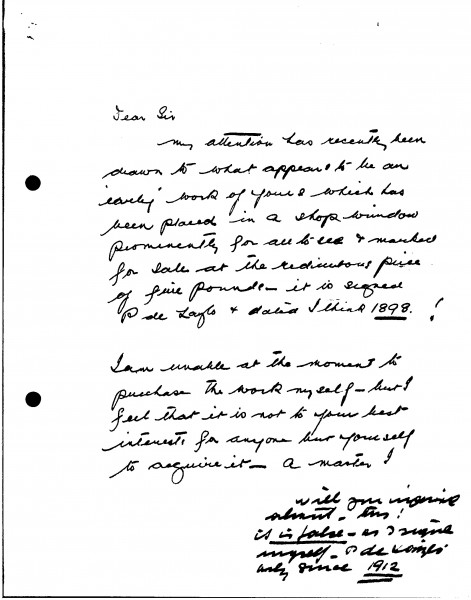 Dear Sir
my attention has recently been
drawn to what appears to be an
'early' work of yours which has
been placed in a shop window
prominently for all to see & marked
for sale at the rediculous price
of five pounds - it is signed
P de Laszlo & dated I think 1898. !
I am unable at the moment to
purchase the work myself - but I
feel that it is not to your best
interests for anyone but yourself
to acquire it - a master !
will you inquire
about - this !
it is false - as I signe
myself - P de Laszlo
only since 1912